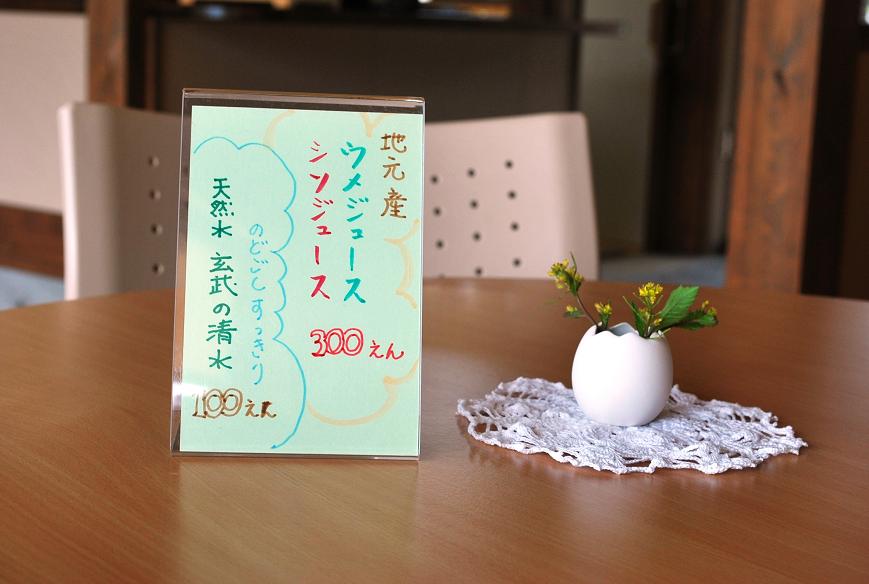 地元産
ウメジュース
シソジュース
300えん
のどごしすっきり
天然水 玄武の清水
100えん